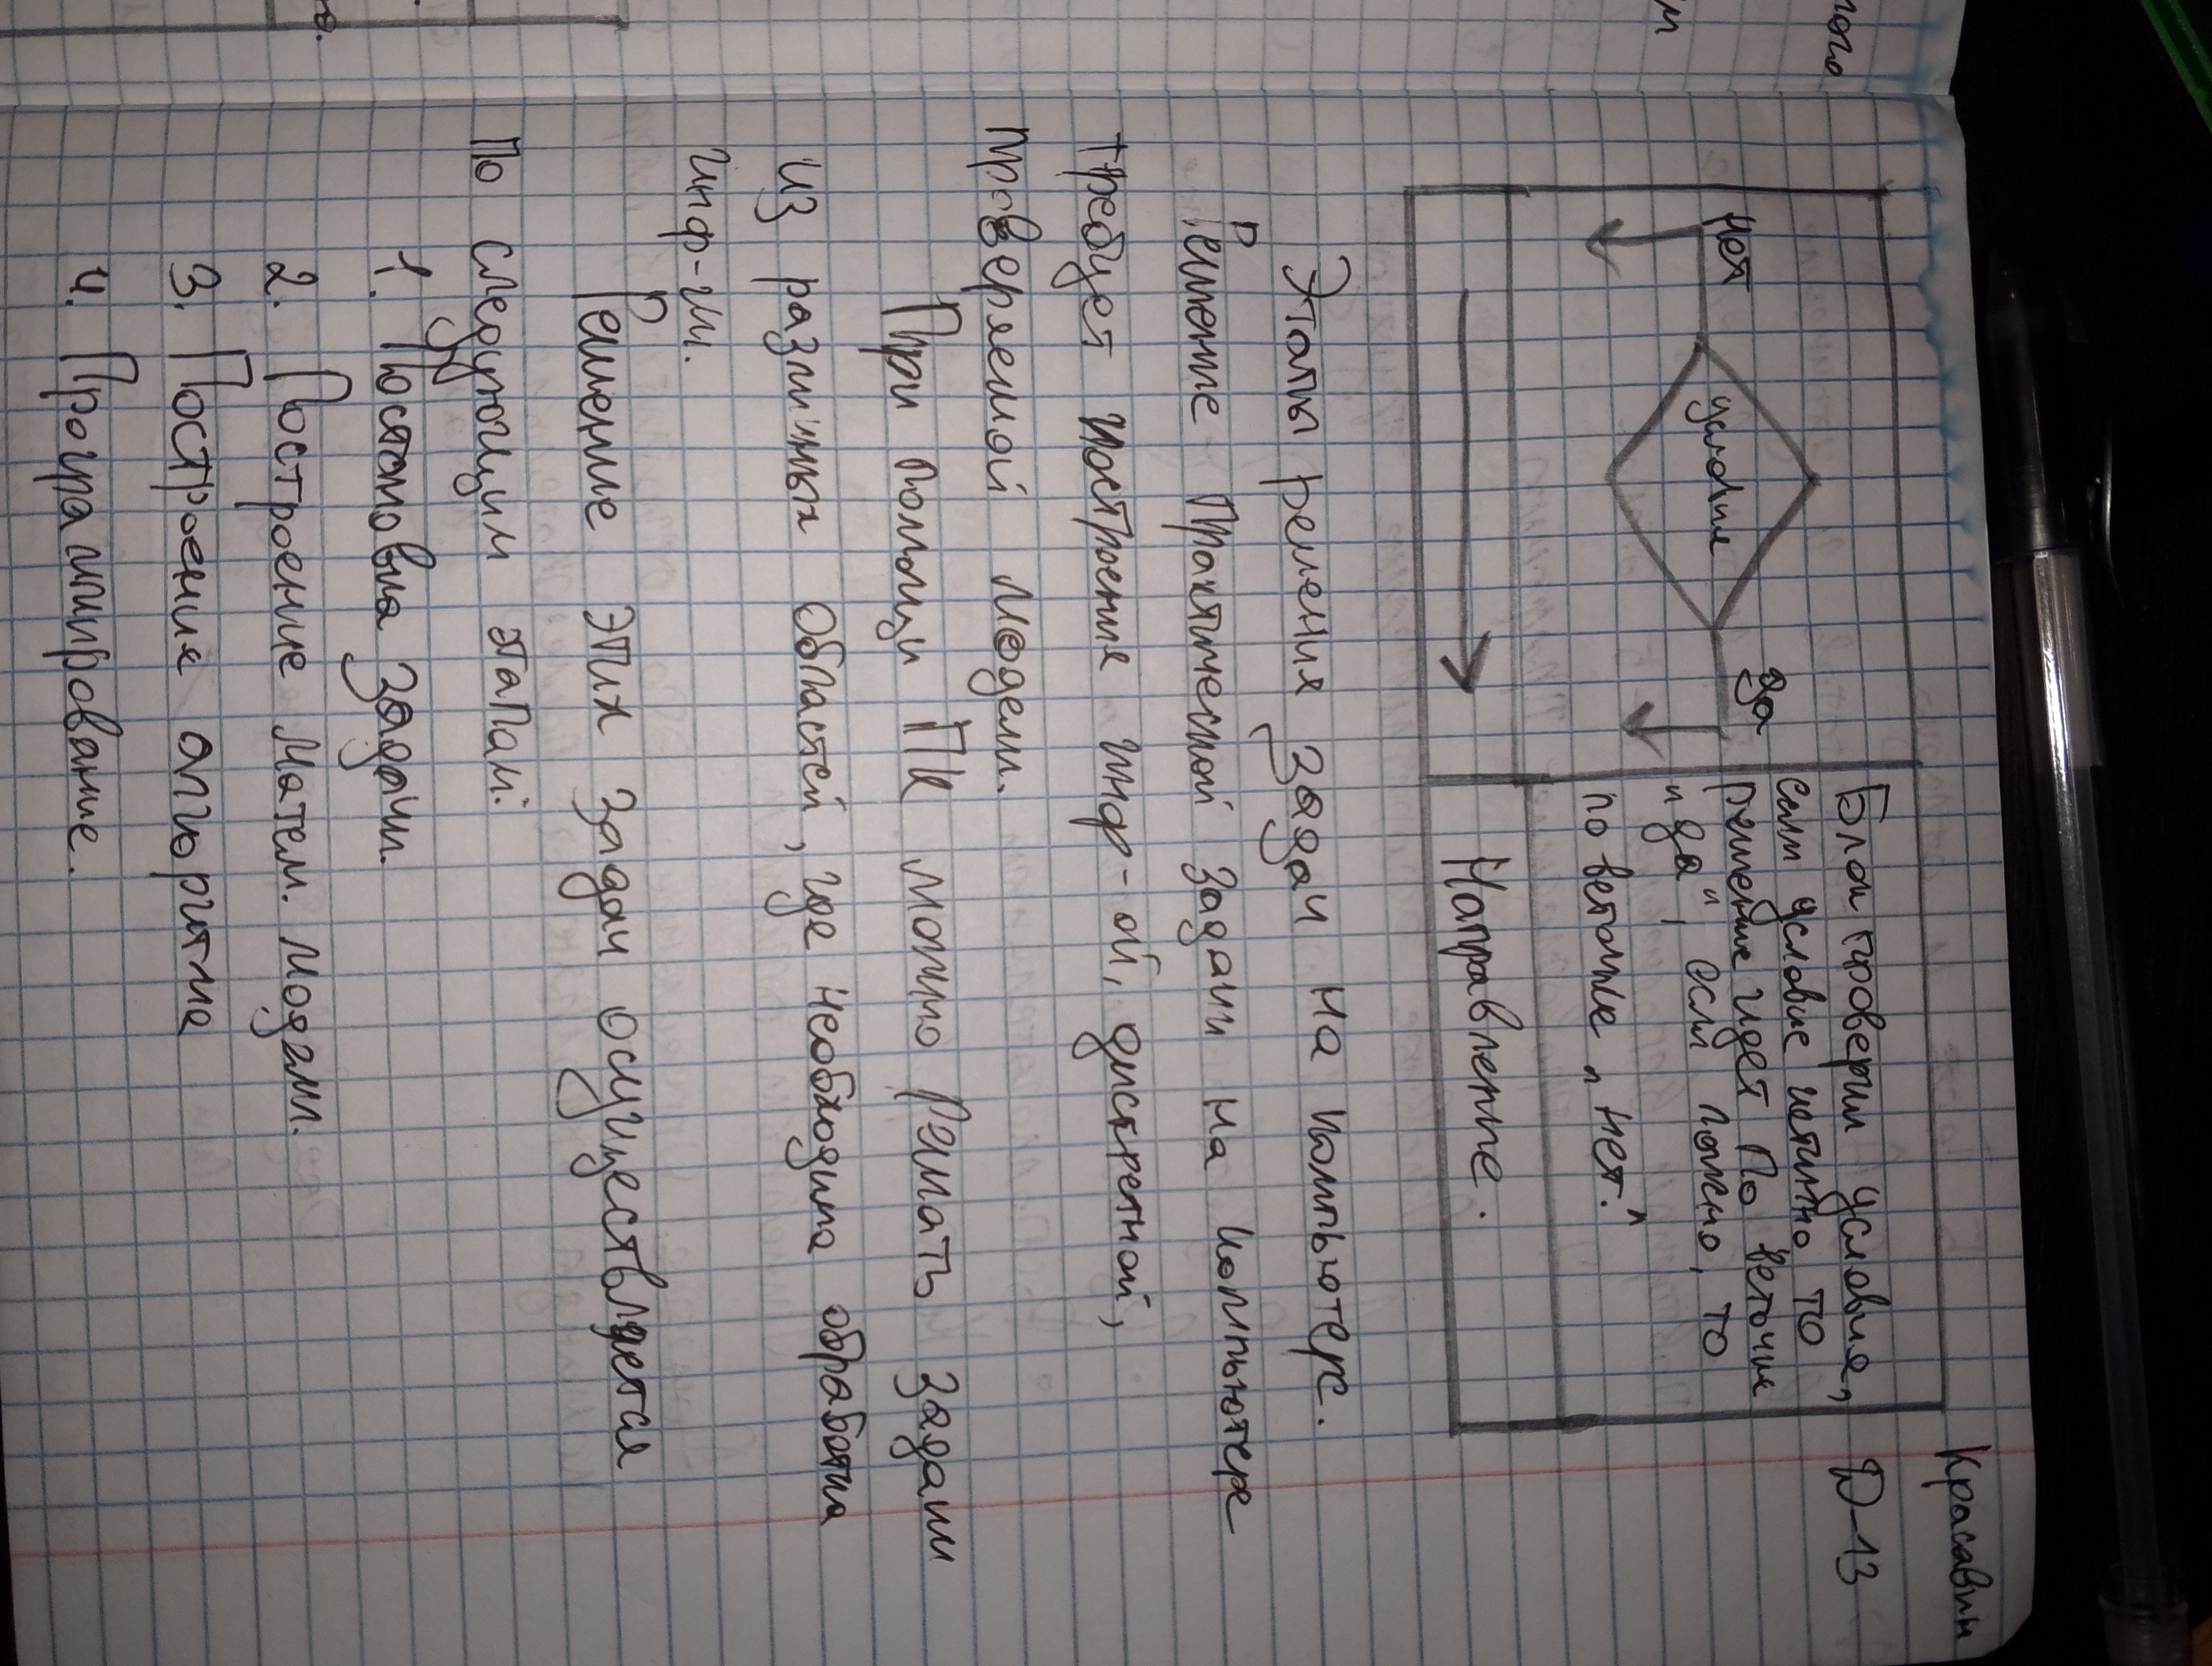 Красавин
Д-13
Блок проверки условия,
если условие истинно то
решение идет по веточке
"да", если ложно, то
по веточке "нет."
нет
условие
да
Направление.
Этапы решения задач на компьютере.
Решение практической задачи на компьютере
требует построения инф-ой, дискретной,
проверяемой модели.
При помощи ПК можно решать задачи
из различных областей, где необходима обработка
инф-ии.
Решение этих задач осуществляется
по следующим этапам:
1. Постановка задачи.
2. Построение матем. модели.
3. Построения алгоритма
4. Программирование.